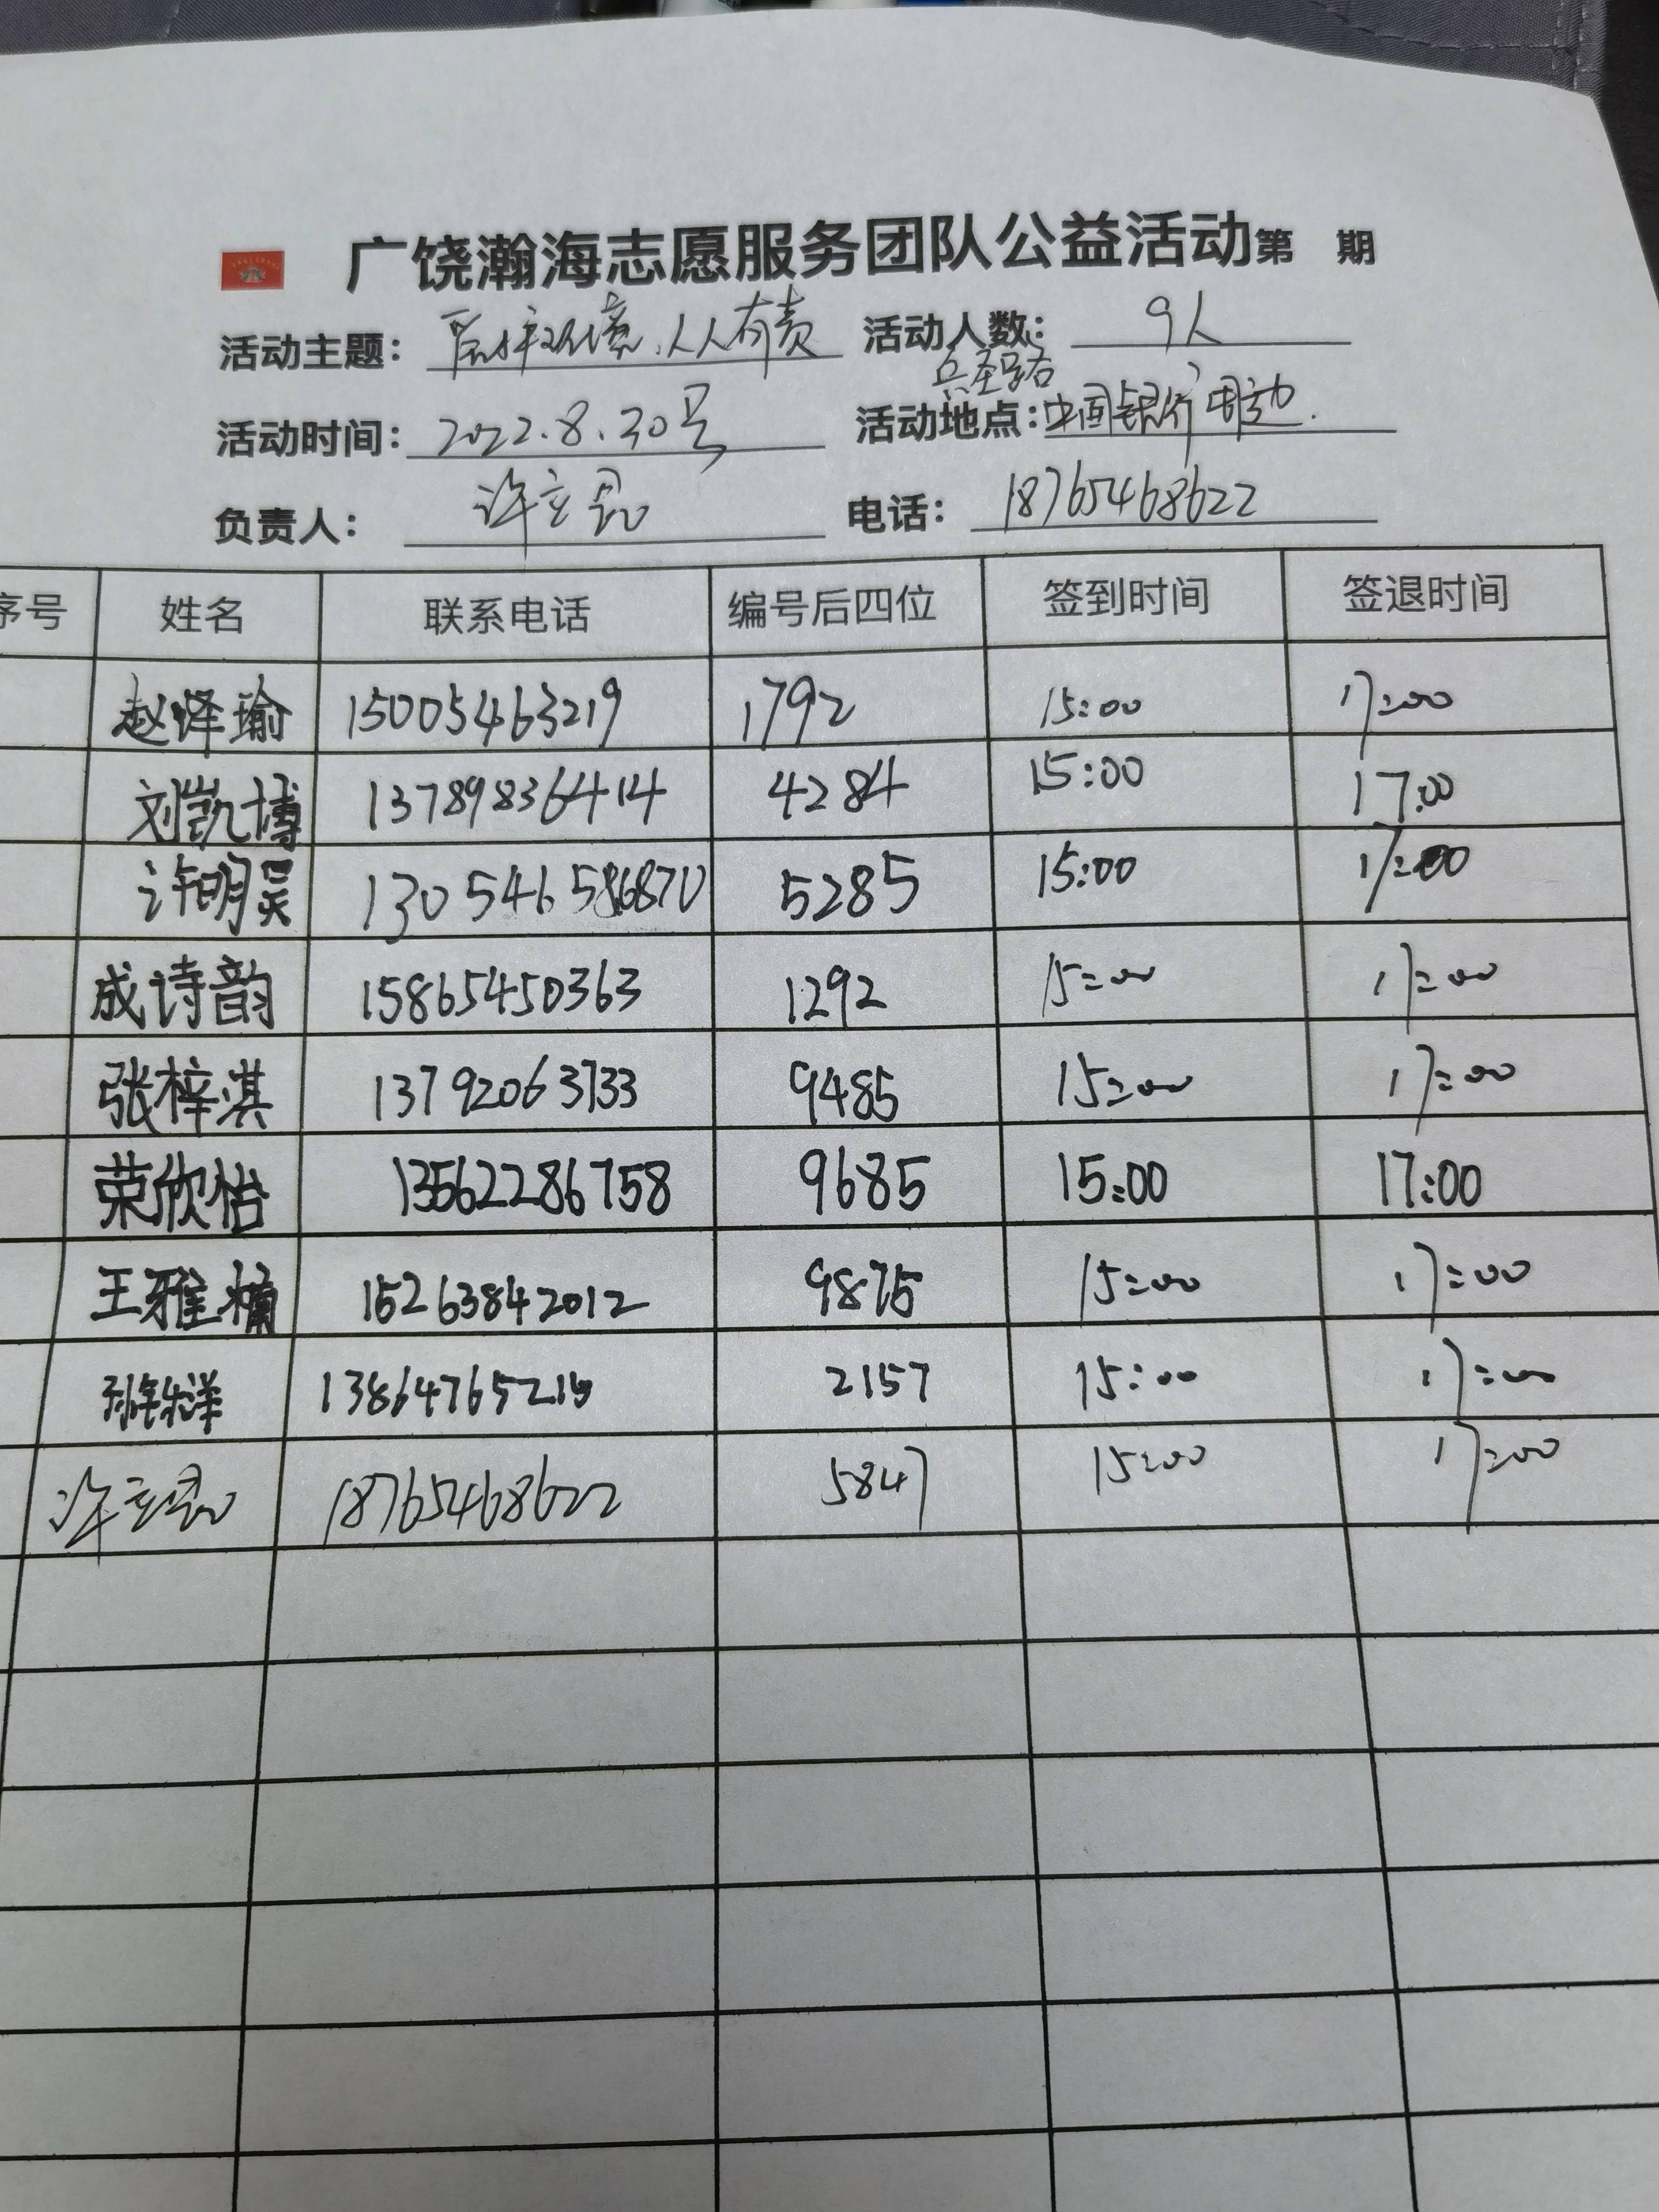 广饶瀚海志愿服务团队公益活动第 期
活动主题： 环境、人人有责 活动人数： 9人
兵圣路
活动时间： 2022.8.30号 活动地点：中国银行周边.
负责人： 许立 电话： 18765468622
序号 姓名 联系电话 编号后四位 签到时间 签退时间
赵烨瑜 15005463219 1792 15:00 17:00
刘凯博 13789836414 4284 15:00 17:00
许明昊 5285 15:00 17:00
成诗韵 15865450363 1292 15:00 17:00
张梓淇 13792063733 9485 15:00 17:00
荣欣怡 13562286758 9685 15:00 17:00
王雅楠 15263842012 9875 15:00 17:00
2157 15:00 17:00
许立 18765468622 5847 15:00 17:00